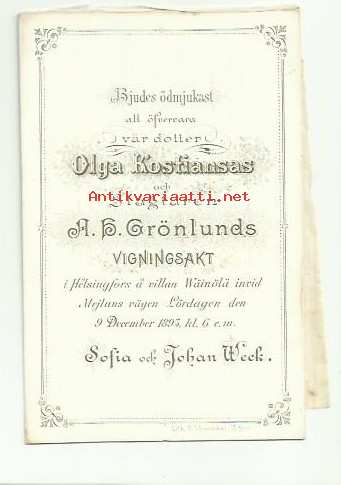 Bjudes ödmjukast
att öfvervara
vår dotter
Olga Kostiansas
och
Antikvariaatti.net
A. H. Grönlunds
VIGNINGSAKT
i Helsingfors å villan Wäinölä invid
Mejlans vägen Lördagen den
9 December 1893, kl. 6 e.m.
Sofia och Johan Weck.